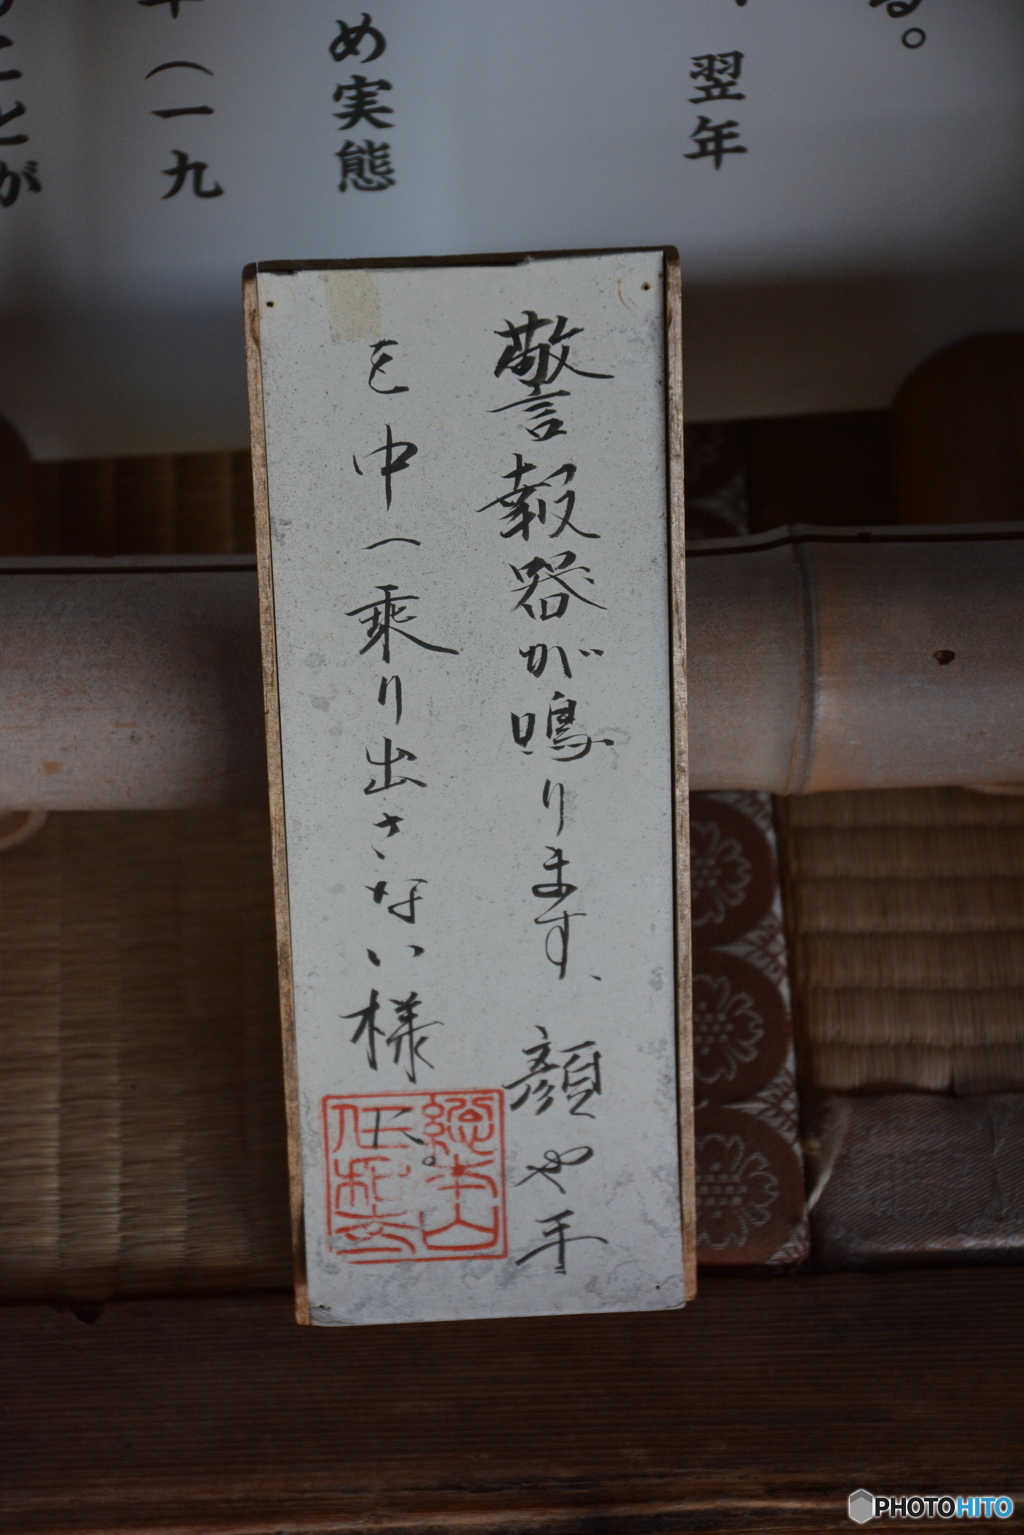 る。
翌年
め実態
年(一九
ことが
警報器が鳴ります、顔や手
を中へ乗り出さない様に。
総本山
仁和寺
PHOTOHITO